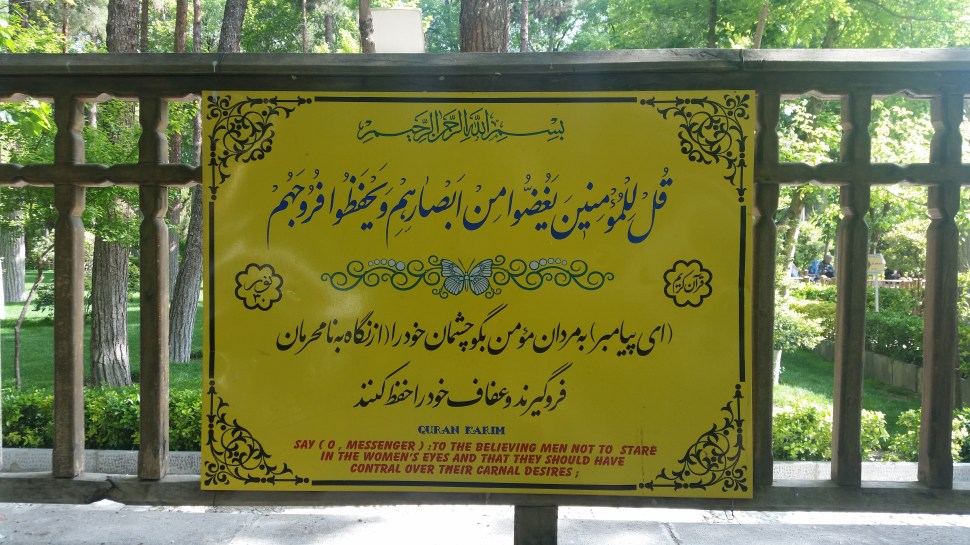 بِسْمِ اللهِ الرَّحْمنِ الرَّحيمِ
قُلْ لِلْمُؤْمِنينَ يَغُضُّوا مِنْ اَبْصارِهِمْ وَيَحْفَظُوا فُرُوجَهُمْ
قرآن کریم
نور
۳۰
(ای پیامبر) به مردان مؤمن بگو چشمان خود را (از نگاه به نامحرمان
فروگیرند و عفاف خود را حفظ کنند
QURAN KARIM
SAY ( O , MESSENGER ) :TO THE BELIEVING MEN NOT TO STARE
IN THE WOMEN'S EYES AND THAT THEY SHOULD HAVE
CONTRAL OVER THEIR CARNAL DESIRES ;